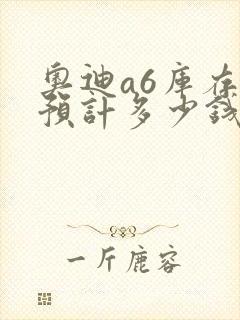 奥迪a6库存
預計多少錢
一斤鹿容